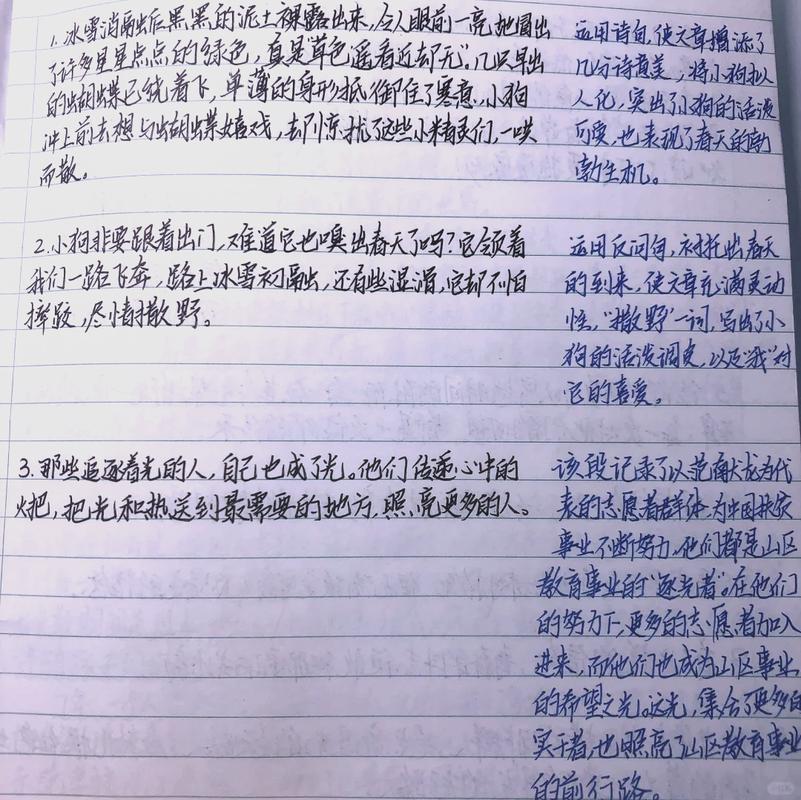 1. 冰雪消融后黑黑的泥土裸露出来,令人眼前一亮,地冒出
了许多星星点点的绿色,真是"草色遥看近却无"。几只早出
的蝴蝶已绕着飞,单薄的身形抵御住了寒意。小狗
冲上前去想与蝴蝶嬉戏,却惊扰了这些小精灵们,一哄
而散。
运用诗句,使文章增添了
几分诗意美,将小狗拟
人化,突出了小狗的活泼
可爱,也表现了春天的勃
勃生机。
2.小狗非要跟着出门,难道它也嗅出春天了吗?它领着
我们一路飞奔,路上冰雪初融,还有些湿滑,它却不怕
摔跤,尽情撒野。
运用反问句,衬托出春天
的到来,使文章充满灵动
性,"撒野"一词,写出了小
狗的活泼调皮,以及"我"对
它的喜爱。
3.那些追逐着光的人,自己也成了光。他们传递心中的
火把,把光和热送到最需要的地方,照亮更多的人。
该段记录了以范献龙为代
表的志愿者群体,为中国扶农
事业不断努力,他们都是山区
教育事业的"逐光者"。在他们
的努力下,更多的志愿者加入
进来,而他们也成为山区事业
的希望之光。这光,集合了更多的
实干者,也照亮了山区教育事业
的前行路。